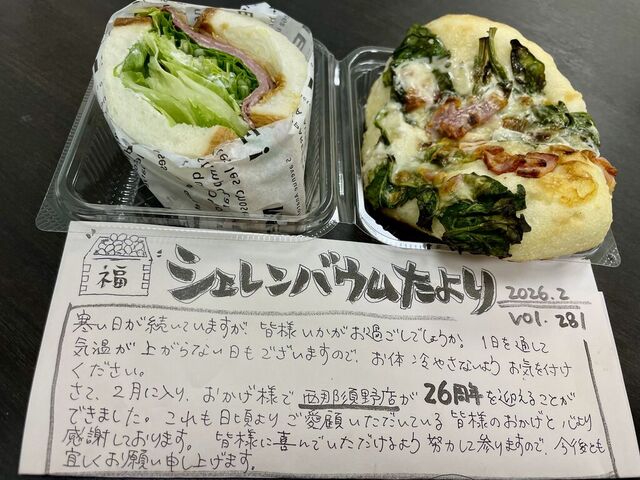 福
シェレンバウムたより
2026.2
vol. 281
寒い日が続いていますが、皆様いかがお過ごしでしょうか。1日を通して
気温が上がらない日もございますので、お体冷やさないようお気を付け
ください。
さて、2月に入り、おかげ様で西那須野店が26周年を迎えることが
できました。これも日頃よりご愛顧いただいている皆様のおかげと心より
感謝しております。皆様に喜んでいただけるよう努力して参りますので、今後とも
宜しくお願い申し上げます。